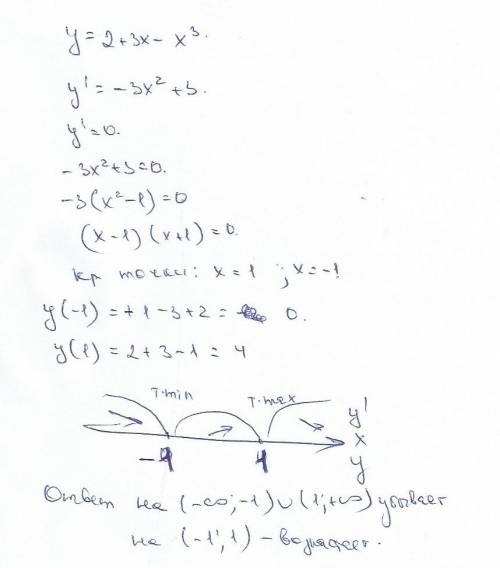 y = 2+3x - x³.
y' = -3x² + 3.
y' = 0.
-3x²+3=0.
-3(x²-1)=0
(x-1)(x+1)=0.
кр точки: x = 1 ; x = -1
y(-1) = +1-3+2 = 0.
y(1) = 2+3-1 = 4
т.min т.max y'
-1 1 x
y
Ответ на (-∞; -1) ∪ (1; +∞) убывает
на (-1; 1) - возрастает.